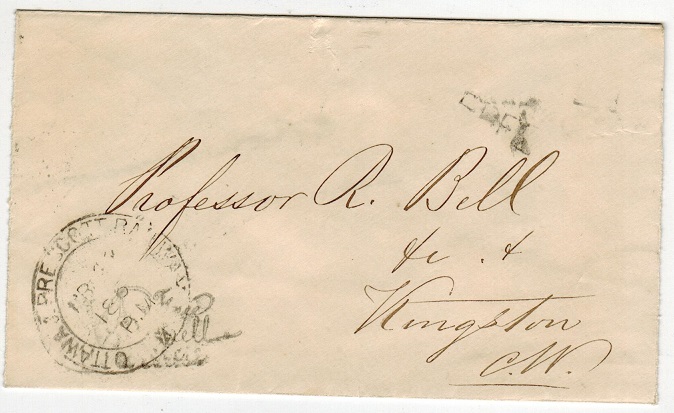 Professor R. Bell
&c. &
Kingston
C.W.
OTTAWA & PRESCOTT RAILWAY
PM